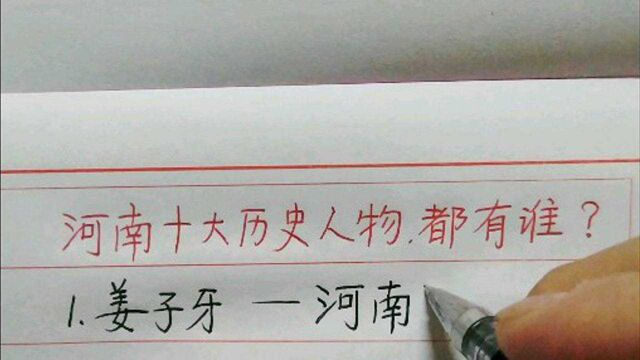 河南十大历史人物,都有谁?
1.姜子牙 — 河南